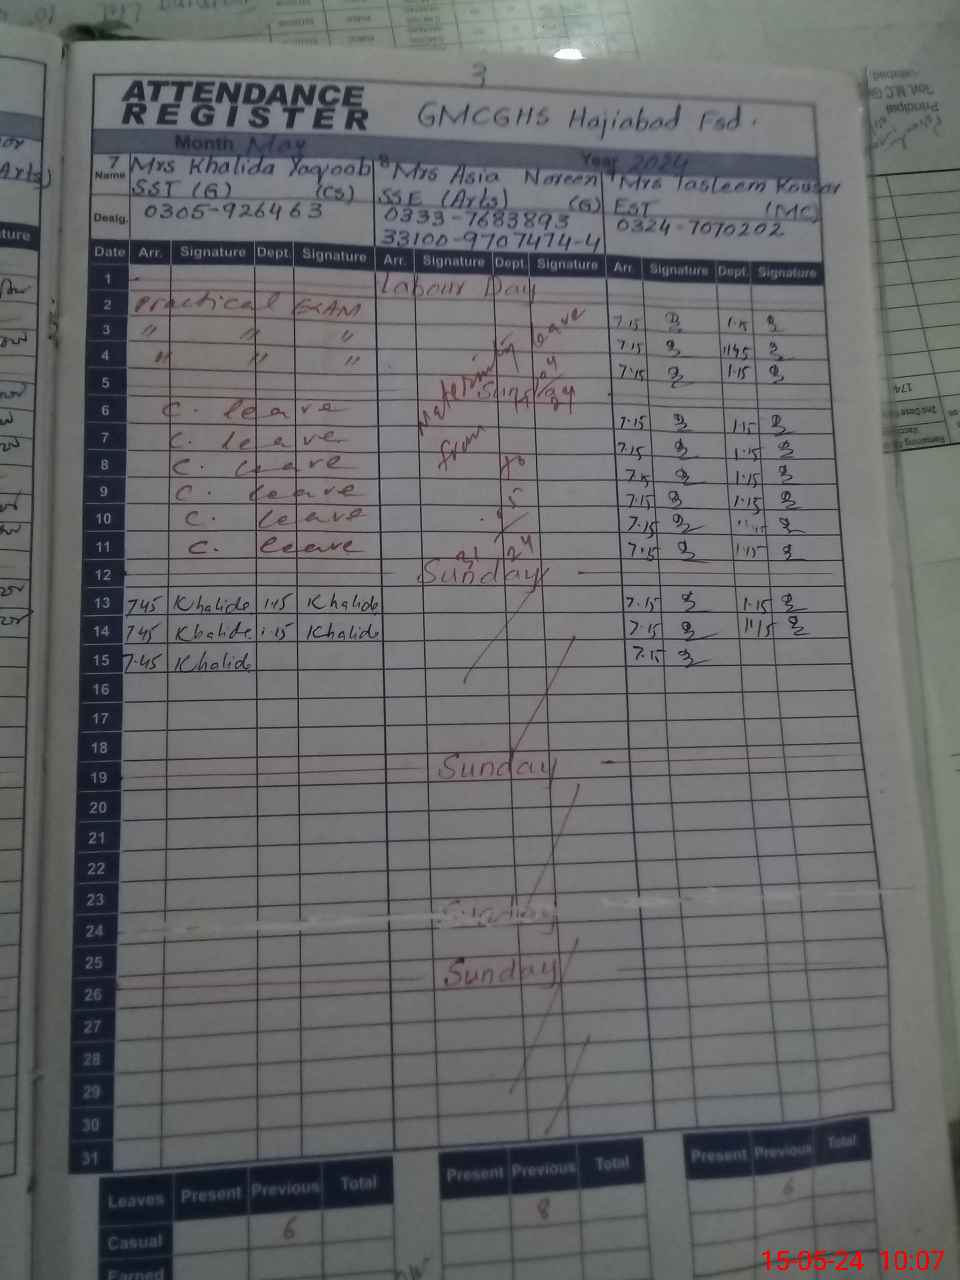 3
ATTENDANCE
REGISTER
GMCGHS Hajiabad Fsd.
Month May Year 2024
Name 7 Mrs Khalida Yaqoob 8 Mrs Asia Noreen Mrs Tasleem Kousar
SST (G) (CS) SSE (Arts) (G) EST (MC)
Desig. 0305-926463 0333-7683893 0324-7070202
33100-9707474-4
Date Arr. Signature Dept. Signature Arr. Signature Dept. Signature Arr. Signature Dept. Signature
1 Labour Day
2 Practical EXAM 7.15 1.15
3 " " " 7.15 1.45
4 " " " 7.15 1.15
Maternity leave
5 Sunday
6 C. leave 7.15 1.15
7 C. leave 7.15 1.15
from
8 C. leave 7.15 1.15
to
9 C. leave 7.15 1.15
10 C. leave 7.15
11 C. leave 7.15 1.15
12 Sunday
13 7.45 Khalida 1.15 Khalida 7.15 1.15
14 7.45 Khalida 1.15 Khalida 7.15 1.15
15 7.45 Khalida 7.15
16
17
18
19 Sunday
20
21
22
23
24 Sunday
25
26 Sunday
27
28
29
30
31
Leaves Present Previous Total Present Previous Total Present Previous Total
Casual 6 8 6
Earned
15-05-24 10:07